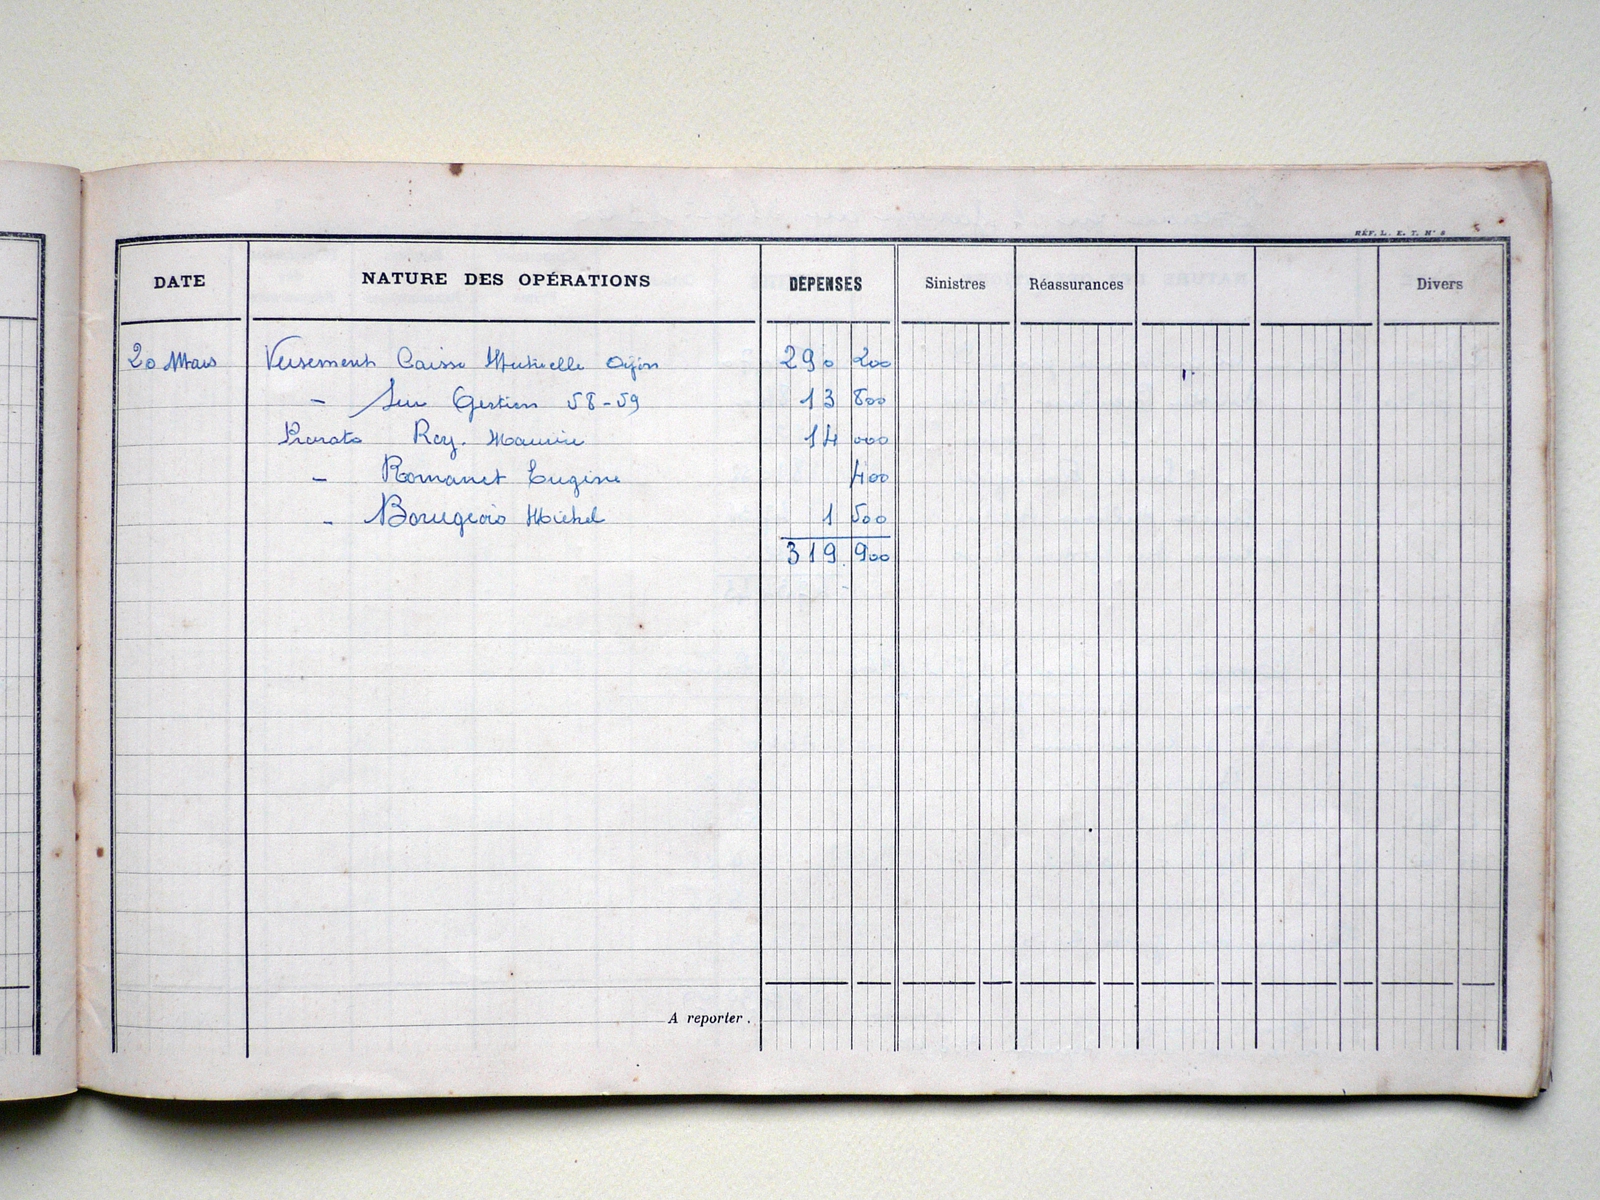 RÉF. L. E. T. N° 8
DATE NATURE DES OPÉRATIONS DÉPENSES Sinistres Réassurances Divers
20 Mars Versement Caisse Mutuelle Dijon 290 200
– Sur Gestion 58-59 13 800
Prorata Roy. Maurice 14 000
– Romanet Eugène 400
– Bourgeois Michel 1 500
319 900
A reporter .